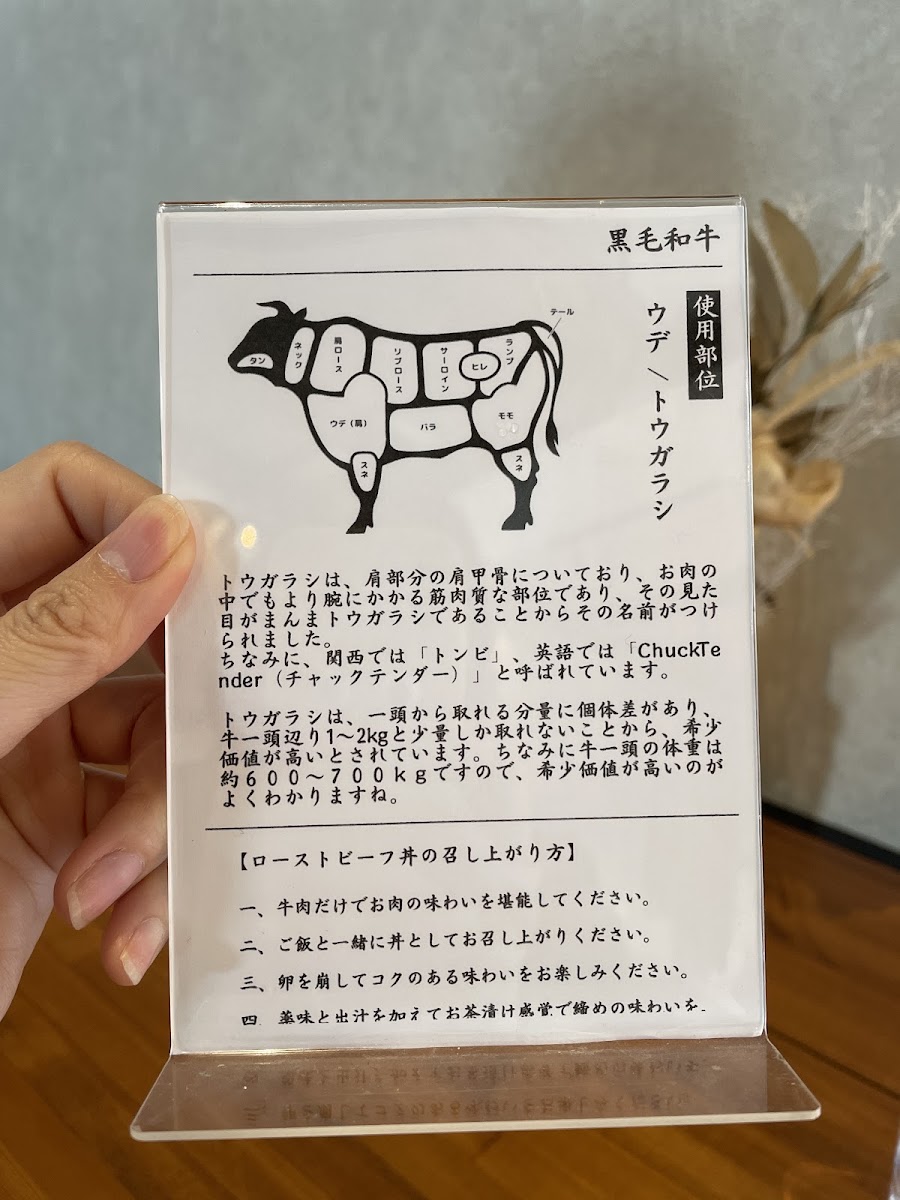 黒毛和牛
使用部位
ウデ／トウガラシ
テール
タン
ネック
肩ロース
リブロース
サーロイン
ヒレ
ランプ
ウデ（肩）
バラ
モモ
スネ
スネ
トウガラシは、肩部分の肩甲骨についており、お肉の
中でもより腕にかかる筋肉質な部位であり、その見た
目がまんまトウガラシであることからその名前がつけ
られました。
ちなみに、関西では「トンビ」、英語では「ChuckTe
nder（チャックテンダー）」と呼ばれています。
トウガラシは、一頭から取れる分量に個体差があり、
牛一頭辺り1〜2kgと少量しか取れないことから、希少
価値が高いとされています。ちなみに牛一頭の体重は
約６００〜７００ｋｇですので、希少価値が高いのが
よくわかりますね。
【ローストビーフ丼の召し上がり方】
一、牛肉だけでお肉の味わいを堪能してください。
二、ご飯と一緒に丼としてお召し上がりください。
三、卵を崩してコクのある味わいをお楽しみください。
四、薬味と出汁を加えてお茶漬け感覚で締めの味わいを。